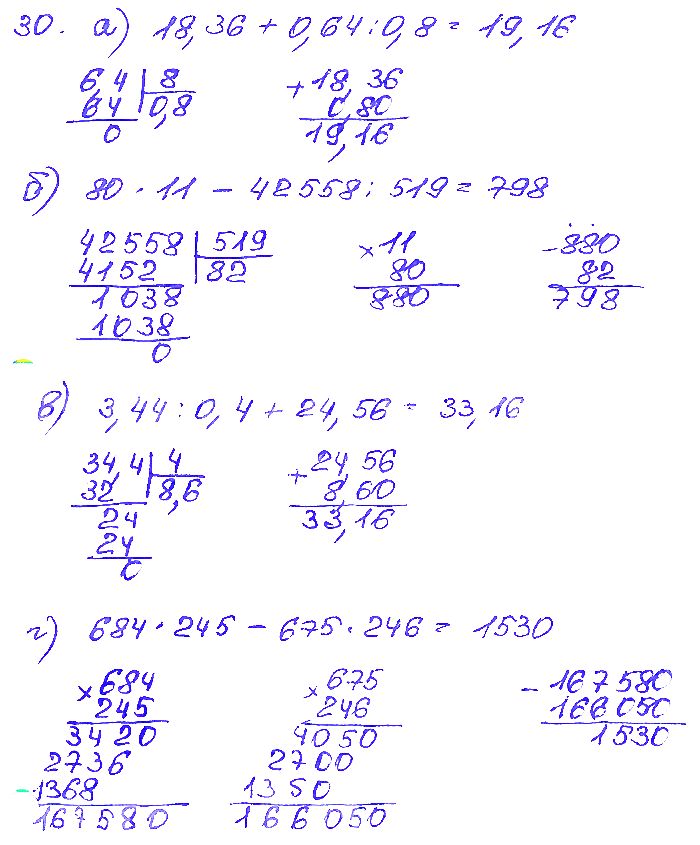 30. а) 18,36 + 0,64 : 0,8 = 19,16
6,4 8 + 18,36
64 0,8 0,80
0 19,16
б) 80 · 11 - 42558 : 519 = 798
42558 519 × 11 - 880
4152 82 80 82
1038 880 798
1038
0
в) 3,44 : 0,4 + 24,56 = 33,16
34,4 4 + 24,56
32 8,6 8,60
24 33,16
24
0
г) 684 · 245 - 675 · 246 = 1530
× 684 × 675 - 167580
245 246 166050
3420 4050 1530
2736 2700
1368 1350
167580 166050